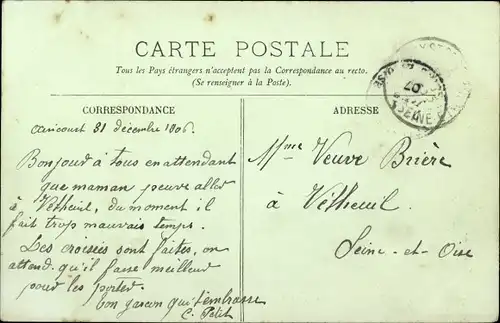 CARTE POSTALE
Tous les Pays étrangers n'acceptent pas la Correspondance au recto.
(Se renseigner à la Poste).
CORRESPONDANCE
31 décembre 1906.
Bonjour à tous en attendant
que maman peuve aller
à Vétheuil, du moment il
fait trop mauvais temps.
Les croisées sont faites, on
attend qu'il fasse meilleur
pour les porter.
bon garçon qui t'embrasse
C. Petit
ADRESSE
Mme Veuve Brière
à Vétheuil
Seine-et-Oise
07
SEINE